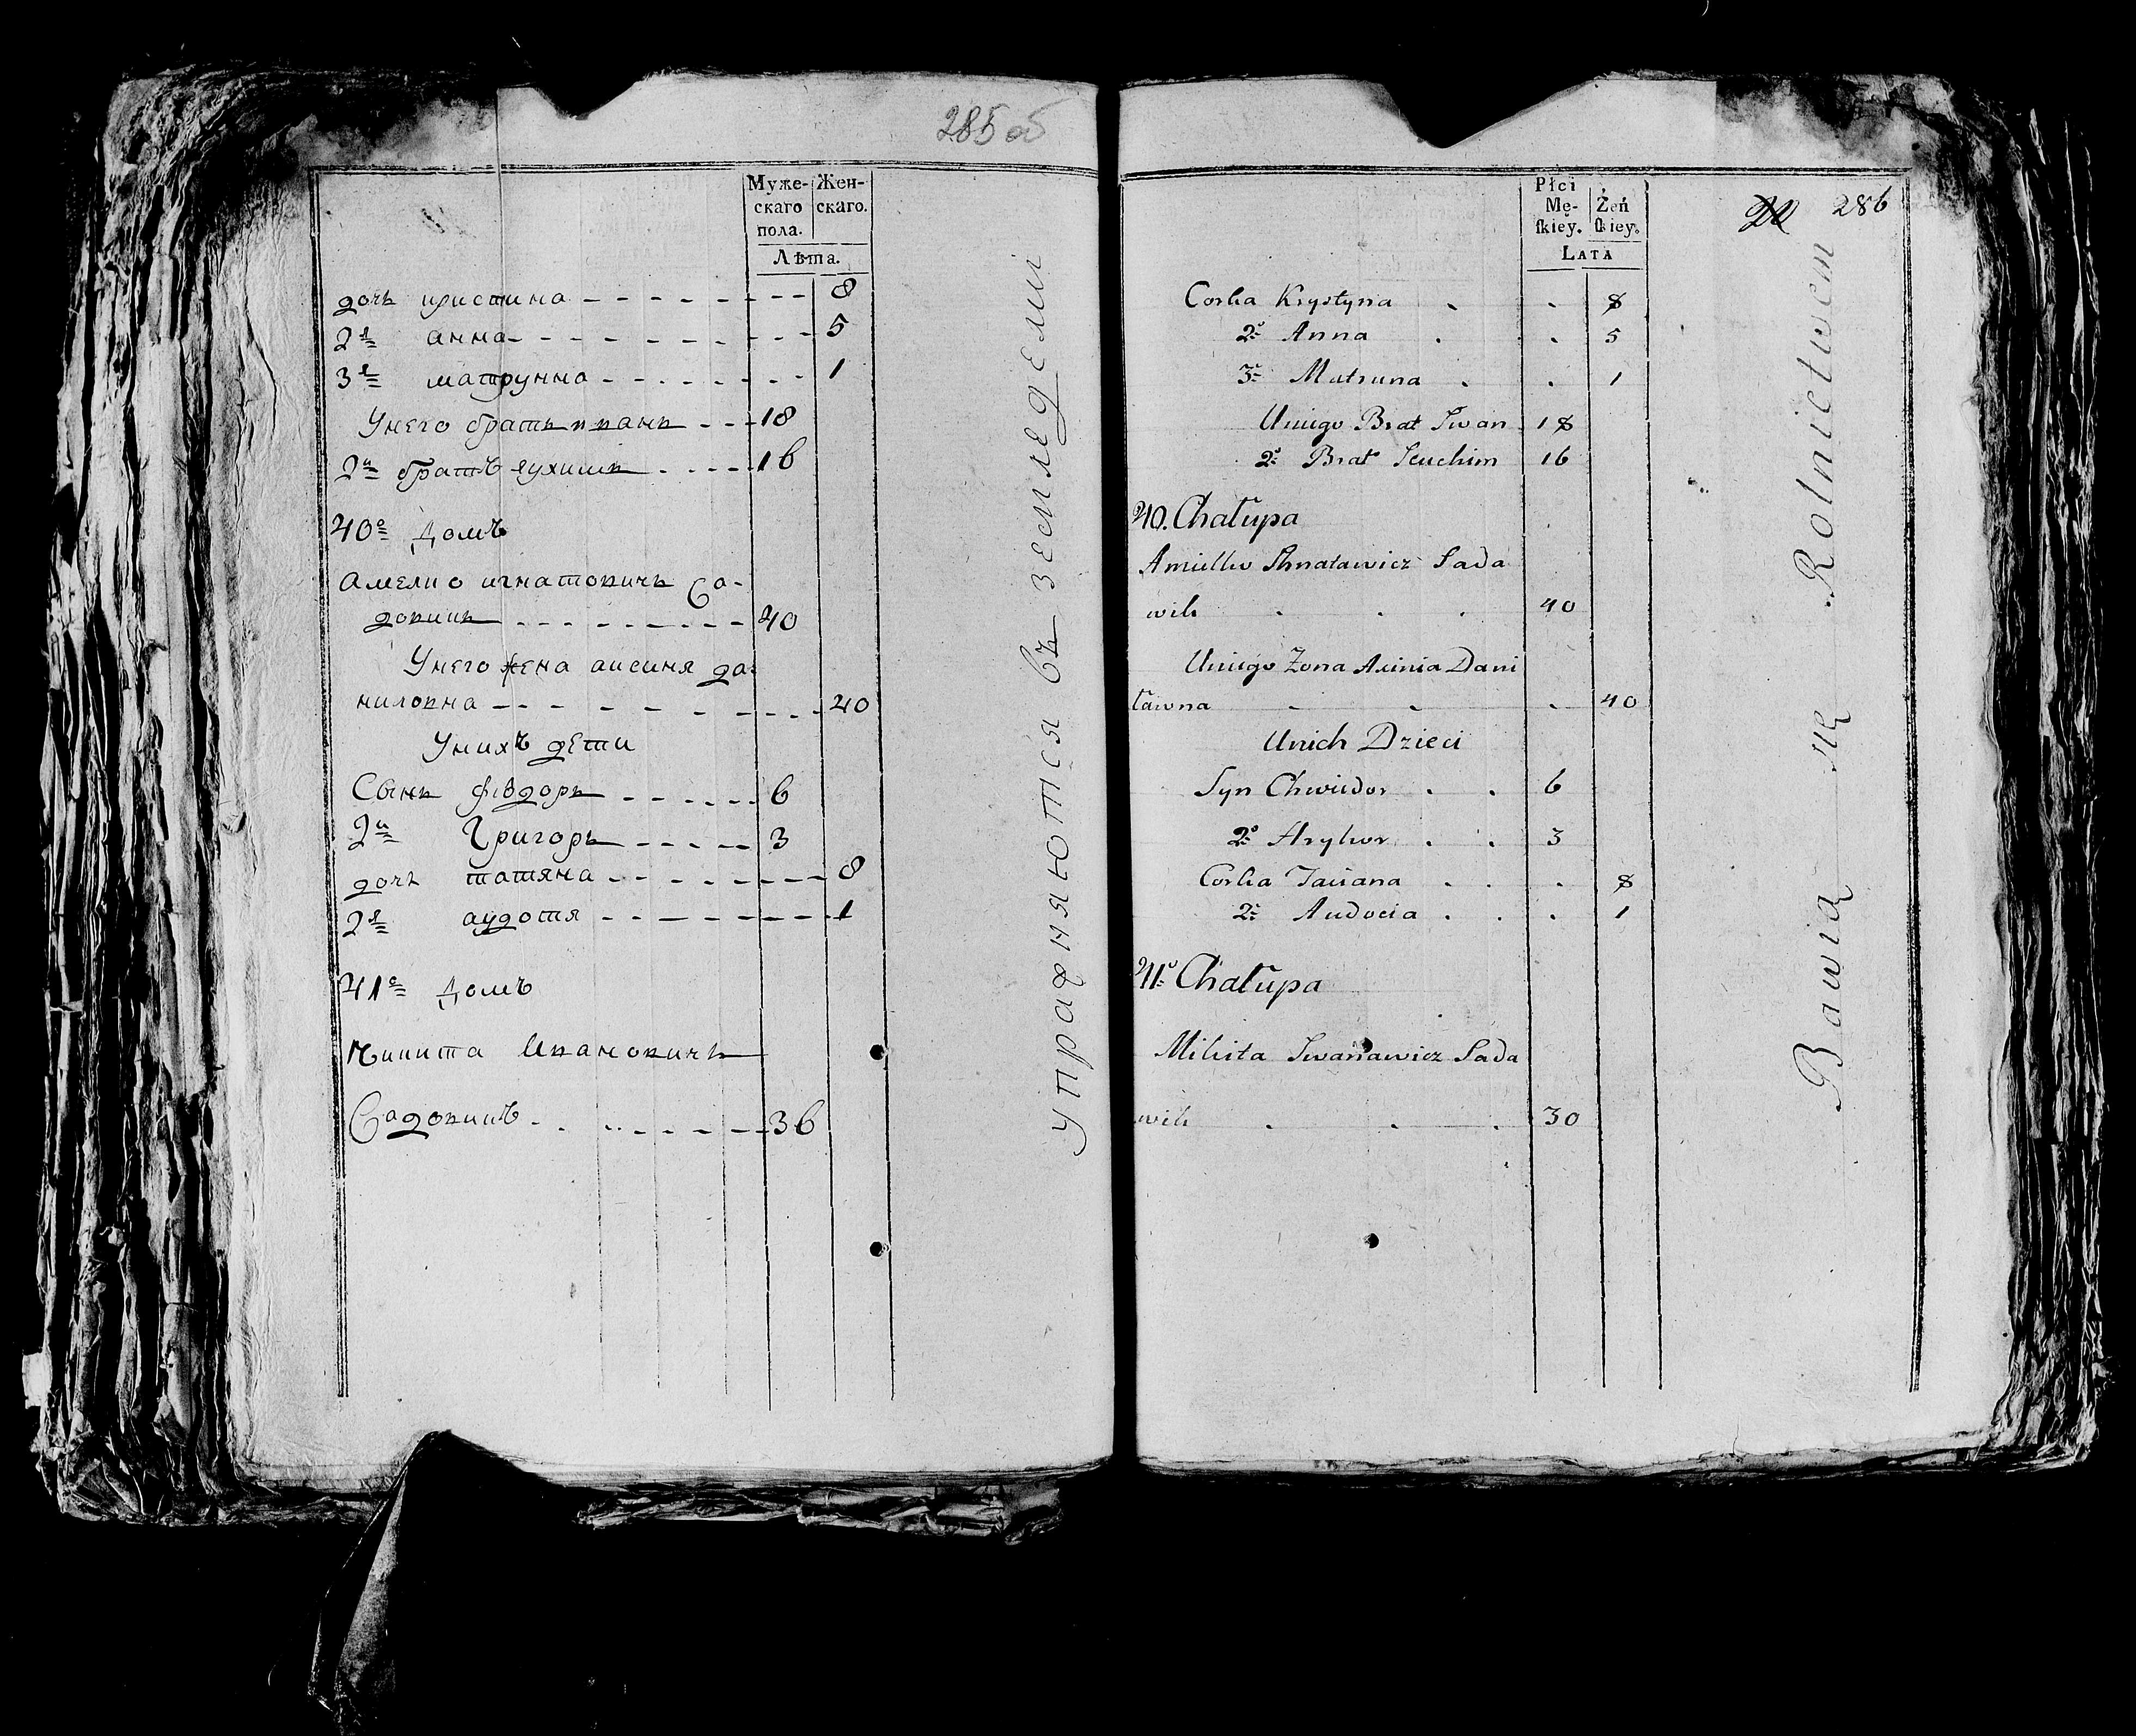 285 об
Муже-
скаго
пола.
Жен-
скаго.
Лѣта.
дочь кристина 8
2я анна 5
3я матрунна 1
Унего братъ иванъ 18
2й братъ яухимъ 16
40е Домъ
Амелко игнатовичъ Са-
довикъ 40
Унего жена аксиня да-
ниловна 40
Унихъ дети
Сынъ фіодоръ 6
2й Григоръ 3
дочь татяна 8
2я аудотя 1
41е Домъ
Микита Ивановичъ
Садовикъ 36
упражняются въ земледеліи
286
Płci
Mę-
ſkiey.
Żeń
ſkiey.
LATA
Corka Krystyna 8
2. Anna 5
3. Matruna 1
Uniego Brat Iwan 18
2. Brat Jeuchim 16
40. Chałupa
Amielko Ihnatawicz Sada
wik 40
Uniego Żona Axinia Dani
ławna 40
Unich Dzieci
Syn Chwiedor 6
2. Hryhor 3
Corka Taciana 8
2. Audocia 1
41. Chałupa
Mikita Iwanawicz Sada
wik 30
Bawią się Rolnictwem